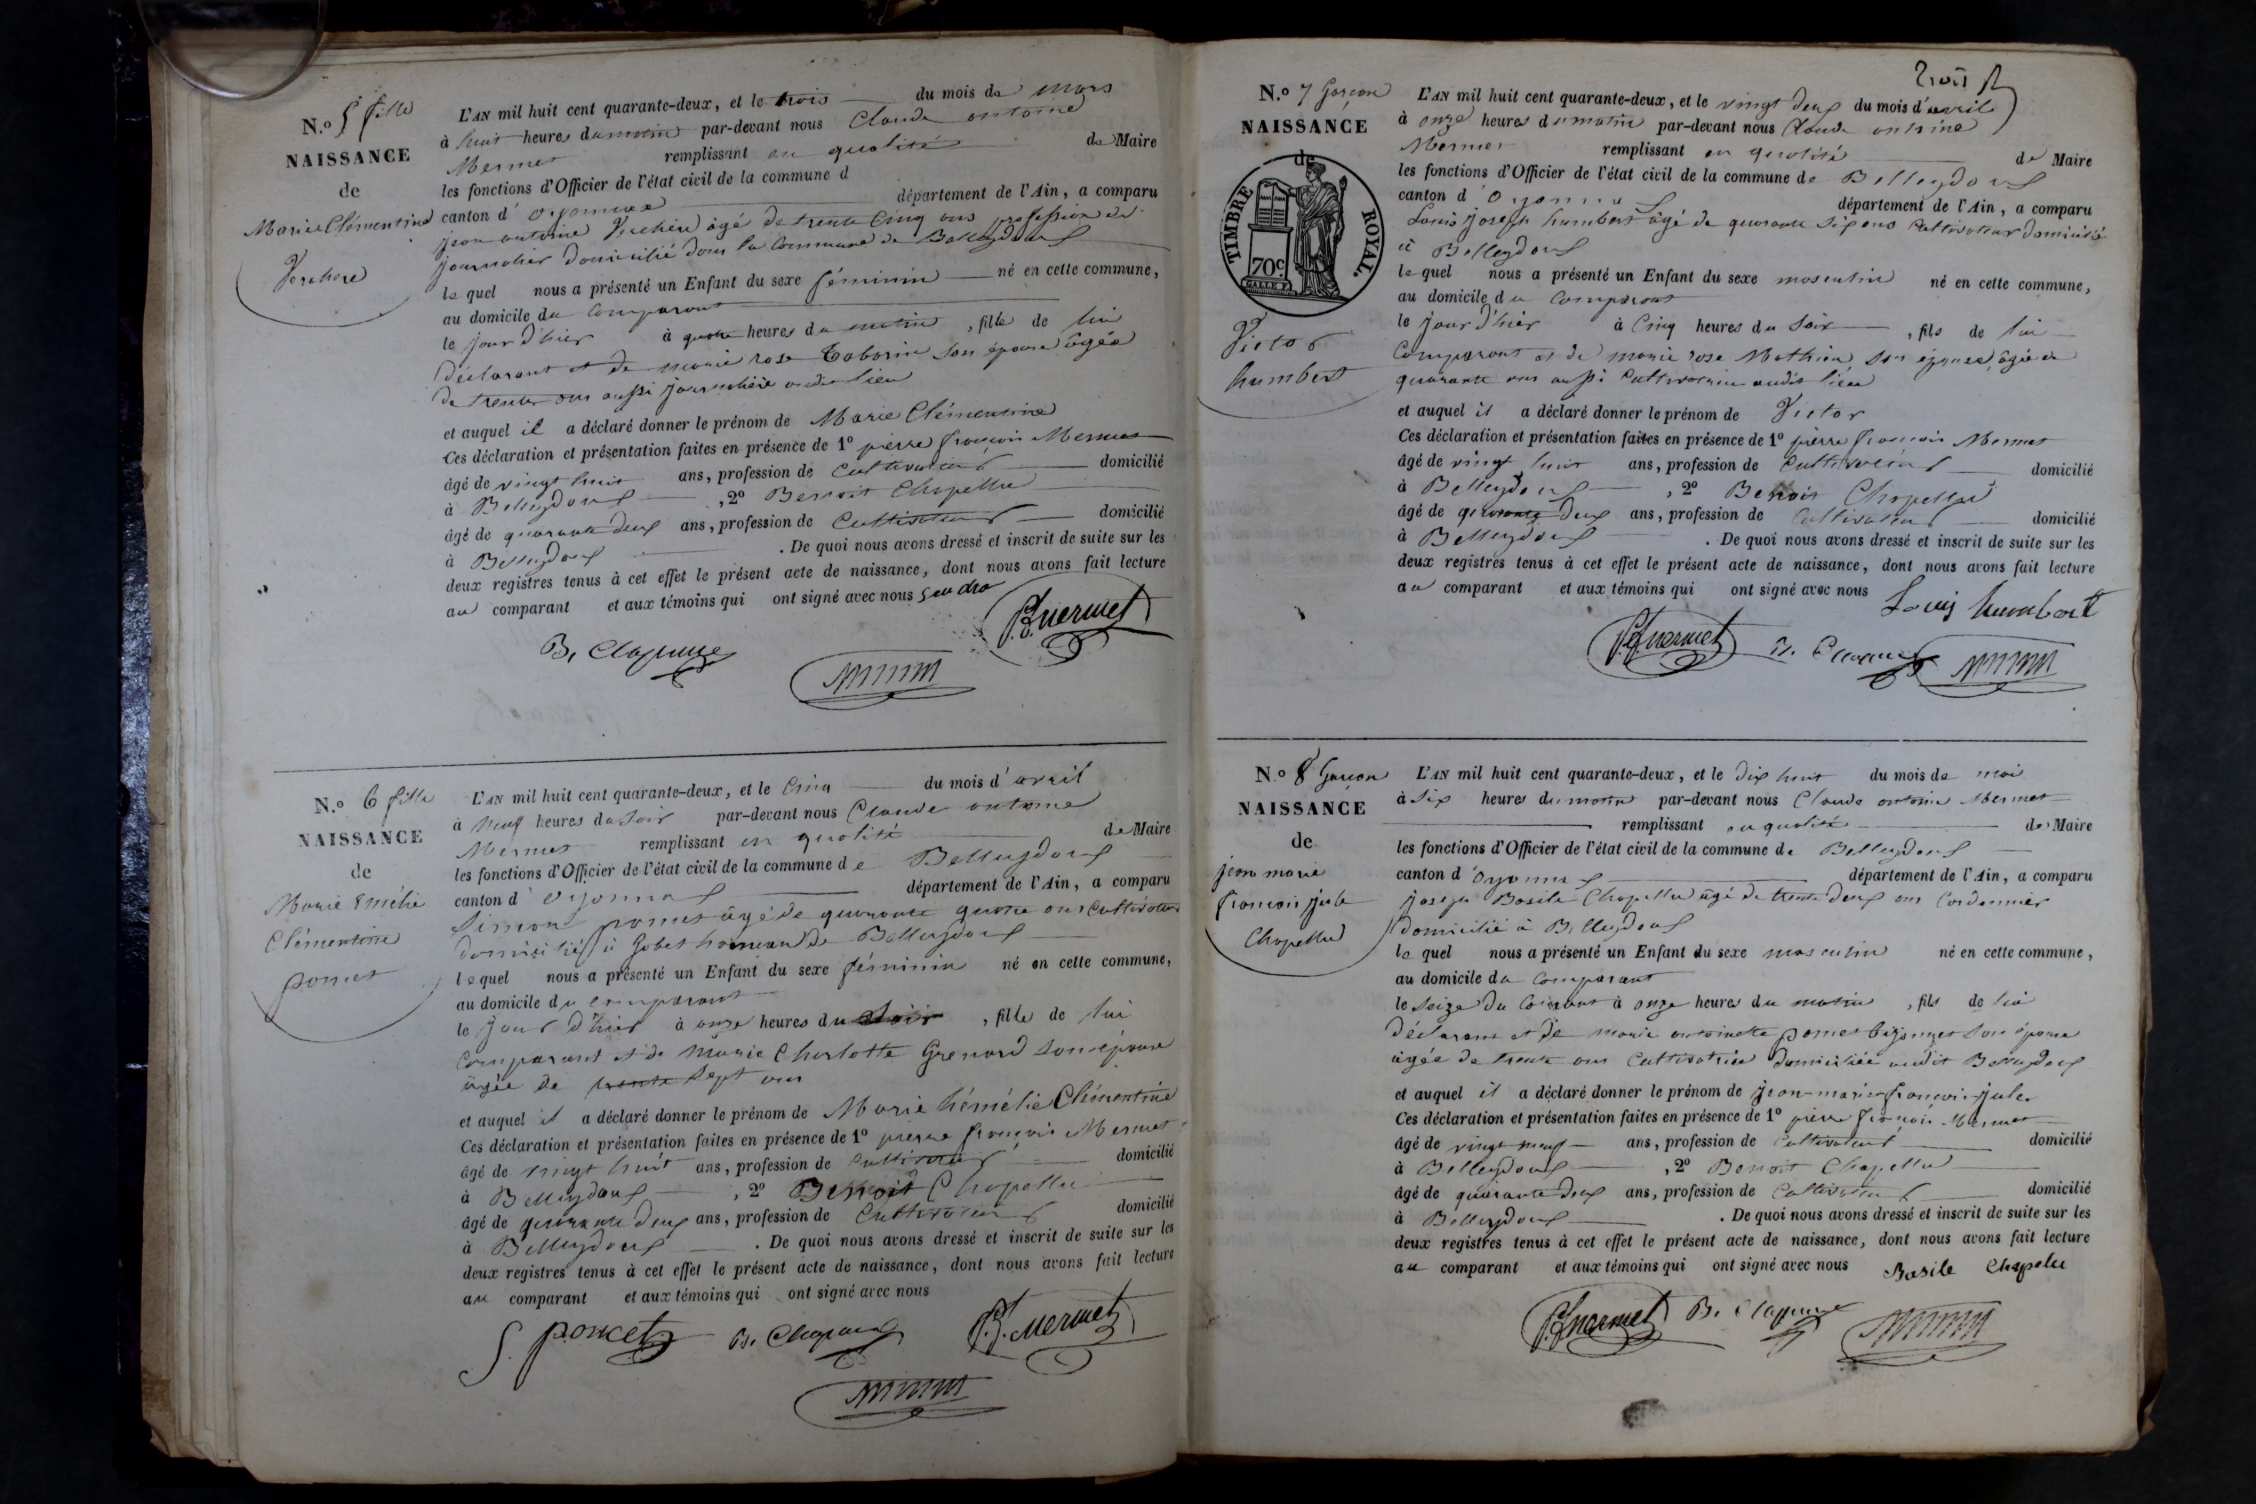 N.º 5 fille
NAISSANCE
de
Marie Clémentine
Verchere
L'AN mil huit cent quarante-deux, et le trois du mois de mars
à huit heures du matin par-devant nous Claude antoine
Mermet remplissant en qualité de Maire
les fonctions d'Officier de l'état civil de la commune d
canton d' oyonnax département de l'Ain, a comparu
jean antoine Verchere âgé de trente cinq ans profession de
journalier domicilié dans la commune de Belleydoux
le quel nous a présenté un Enfant du sexe féminin né en cette commune,
au domicile du comparant
le jour d'hier à quatre heures du matin, fille de lui
déclarant et de marie rose Taborin son épouse âgée
de trente ans aussi journalière audit lieu
et auquel il a déclaré donner le prénom de Marie Clémentine
Ces déclaration et présentation faites en présence de 1º pierre françois Mermet
âgé de vingt huit ans, profession de Cultivateur domicilié
à Belleydoux, 2º Benoit Chapellu
âgé de quarante deux ans, profession de Cultivateur domicilié
à Belleydoux. De quoi nous avons dressé et inscrit de suite sur les
deux registres tenus à cet effet le présent acte de naissance, dont nous avons fait lecture
au comparant et aux témoins qui ont signé avec nous
P.f. mermet
N.º 6 fille
NAISSANCE
de
Marie Emélie
Clémentine
poncet
L'AN mil huit cent quarante-deux, et le Cinq du mois d'avril
à neuf heures du soir par-devant nous Claude antoine
Mermet remplissant en qualité de Maire
les fonctions d'Officier de l'état civil de la commune de Belleydoux
canton d' oyonnax département de l'Ain, a comparu
Simon poncet âgé de quarante quatre ans Cultivateur
domicilié à Gobet hameau de Belleydoux
lequel nous a présenté un Enfant du sexe féminin né en cette commune,
au domicile du comparant
le jour d'hier à onze heures du soir, fille de lui
Comparant et de Marie Charlotte Grenard son épouse
âgée de trente sept ans
et auquel il a déclaré donner le prénom de Marie hémélie Clémentine
Ces déclaration et présentation faites en présence de 1º pierre françois Mermet
âgé de vingt huit ans, profession de Cultivateur domicilié
à Belleydoux, 2º Benoit Chapellu
âgé de quarante deux ans, profession de Cultivateur domicilié
à Belleydoux. De quoi nous avons dressé et inscrit de suite sur les
deux registres tenus à cet effet le présent acte de naissance, dont nous avons fait lecture
au comparant et aux témoins qui ont signé avec nous
S. poncet P.f. mermet
trois
N.º 7 Garçon
NAISSANCE
de
TIMBRE ROYAL.
70c
Victor
humbert
L'AN mil huit cent quarante-deux, et le vingt deux du mois d'avril
à onze heures du matin par-devant nous Claude antoine
Mermet remplissant en qualité de Maire
les fonctions d'Officier de l'état civil de la commune de Belleydoux
canton d' oyonnax département de l'Ain, a comparu
Louis joseph humbert âgé de quarante six ans Cultivateur domicilié
à Belleydoux
le quel nous a présenté un Enfant du sexe masculin né en cette commune,
au domicile du Comparant
le jour d'hier à Cinq heures du Soir, fils de lui
Comparant et de marie rose Mathieu son épouse âgée de
quarante ans aussi Cultivatrice audit lieu
et auquel il a déclaré donner le prénom de Victor
Ces déclaration et présentation faites en présence de 1º pierre françois Mermet
âgé de vingt huit ans, profession de Cultivateur domicilié
à Belleydoux, 2º Benoit Chapellu
âgé de quarante deux ans, profession de Cultivateur domicilié
à Belleydoux. De quoi nous avons dressé et inscrit de suite sur les
deux registres tenus à cet effet le présent acte de naissance, dont nous avons fait lecture
au comparant et aux témoins qui ont signé avec nous Louis humbert
P.f. mermet
N.º 8 Garçon
NAISSANCE
de
jean marie
françois jule
Chapellu
L'AN mil huit cent quarante-deux, et le dix huit du mois de mai
à Six heures du matin par-devant nous Claude antoine Mermet
remplissant en qualité de Maire
les fonctions d'Officier de l'état civil de la commune de Belleydoux
canton d'oyonnax département de l'Ain, a comparu
joseph Basile Chapellu âgé de trente deux ans Cordonnier
domicilié à Belleydoux
le quel nous a présenté un Enfant du sexe masculin né en cette commune,
au domicile du comparant
le seize du Courant à onze heures du matin, fils de lui
déclarant et de marie antoinette poncet son épouse
âgée de trente ans Cultivatrice domiciliée audit Belleydoux
et auquel il a déclaré donner le prénom de jean-marie françois-jule
Ces déclaration et présentation faites en présence de 1º pierre françois Mermet
âgé de vingt neuf ans, profession de Cultivateur domicilié
à Belleydoux, 2º Benoit Chapellu
âgé de quarante deux ans, profession de Cultivateur domicilié
à Belleydoux. De quoi nous avons dressé et inscrit de suite sur les
deux registres tenus à cet effet le présent acte de naissance, dont nous avons fait lecture
au comparant et aux témoins qui ont signé avec nous Basile Chapelu
P.f. mermet